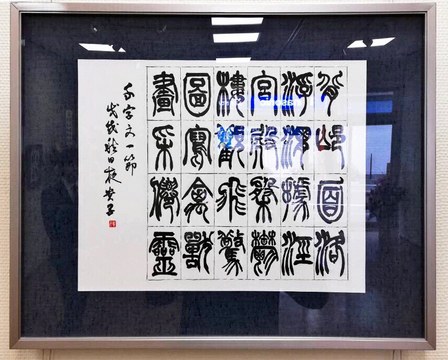 背邙面洛
浮渭據涇
宮殿盤鬱
樓觀飛驚
圖寫禽獸
畫采僊靈
千字文一節
戊戌